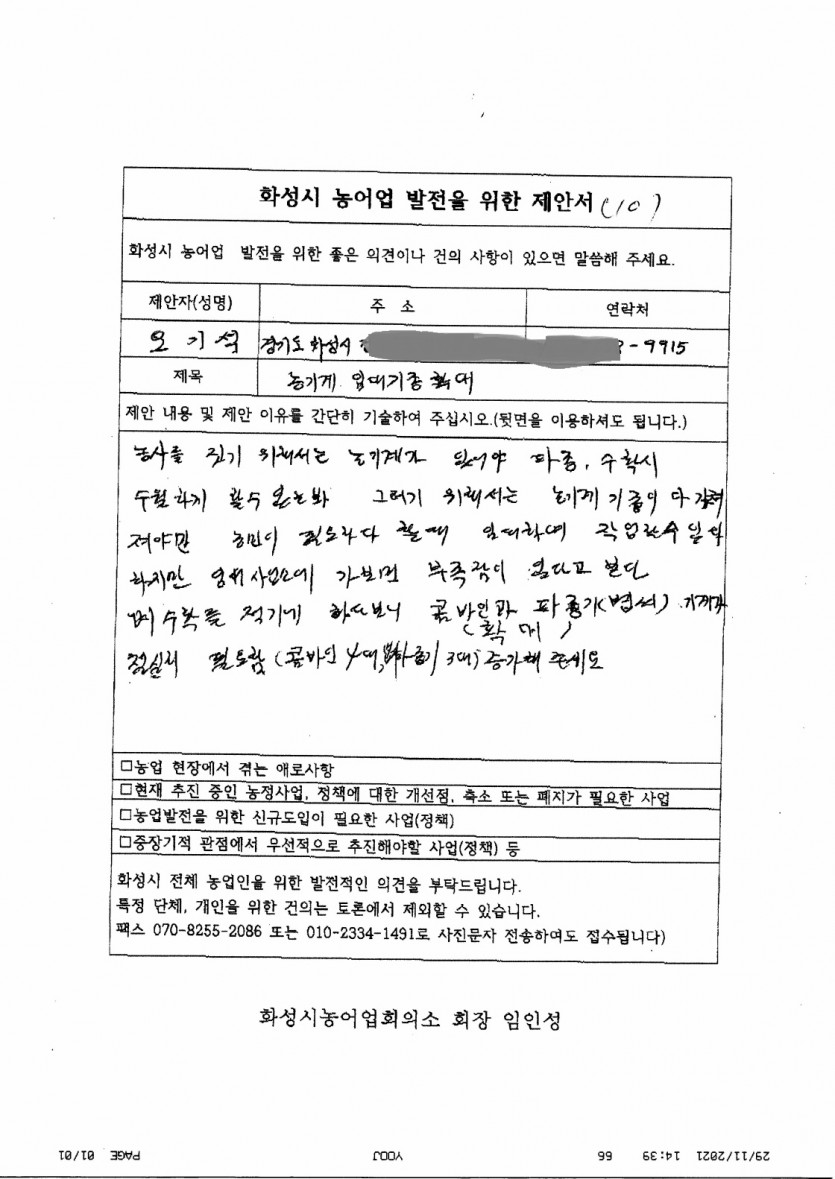 화성시 농어업 발전을 위한 제안서 (10)
화성시 농어업 발전을 위한 좋은 의견이나 건의 사항이 있으면 말씀해 주세요.
제안자(성명) 주 소 연락처
오 기 석 경기도 화성시 -9915
제목 농기계 임대기종 확대
제안 내용 및 제안 이유를 간단히 기술하여 주십시오.(뒷면을 이용하셔도 됩니다.)
농사를 짓기 위해서는 농기계가 있어야 파종, 수확시
수월하게 할수 있는바 그러기 위해서는 농기계 기종이 다 갖춰
져야만 농민이 필요하다 할때 임대하여 작업할수 있
하지만 임대사업소에 가보면 부족함이 있다고 본다
벼 수확을 적기에 하다보니 콤바인과 파종기(볍씨) 기계가
(확 대)
절실히 필요함 (콤바인 4대, 파종기 3대) 증가해 주세요
□농업 현장에서 겪는 애로사항
□현재 추진 중인 농정사업, 정책에 대한 개선점, 축소 또는 폐지가 필요한 사업
□농업발전을 위한 신규도입이 필요한 사업(정책)
□중장기적 관점에서 우선적으로 추진해야할 사업(정책) 등
화성시 전체 농업인을 위한 발전적인 의견을 부탁드립니다.
특정 단체, 개인을 위한 건의는 토론에서 제외할 수 있습니다.
팩스 070-8255-2086 또는 010-2334-1491로 사진문자 전송하여도 접수됩니다)
화성시농어업회의소 회장 임인성
29/11/2021 14:39 66 YOOJ PAGE 01/01